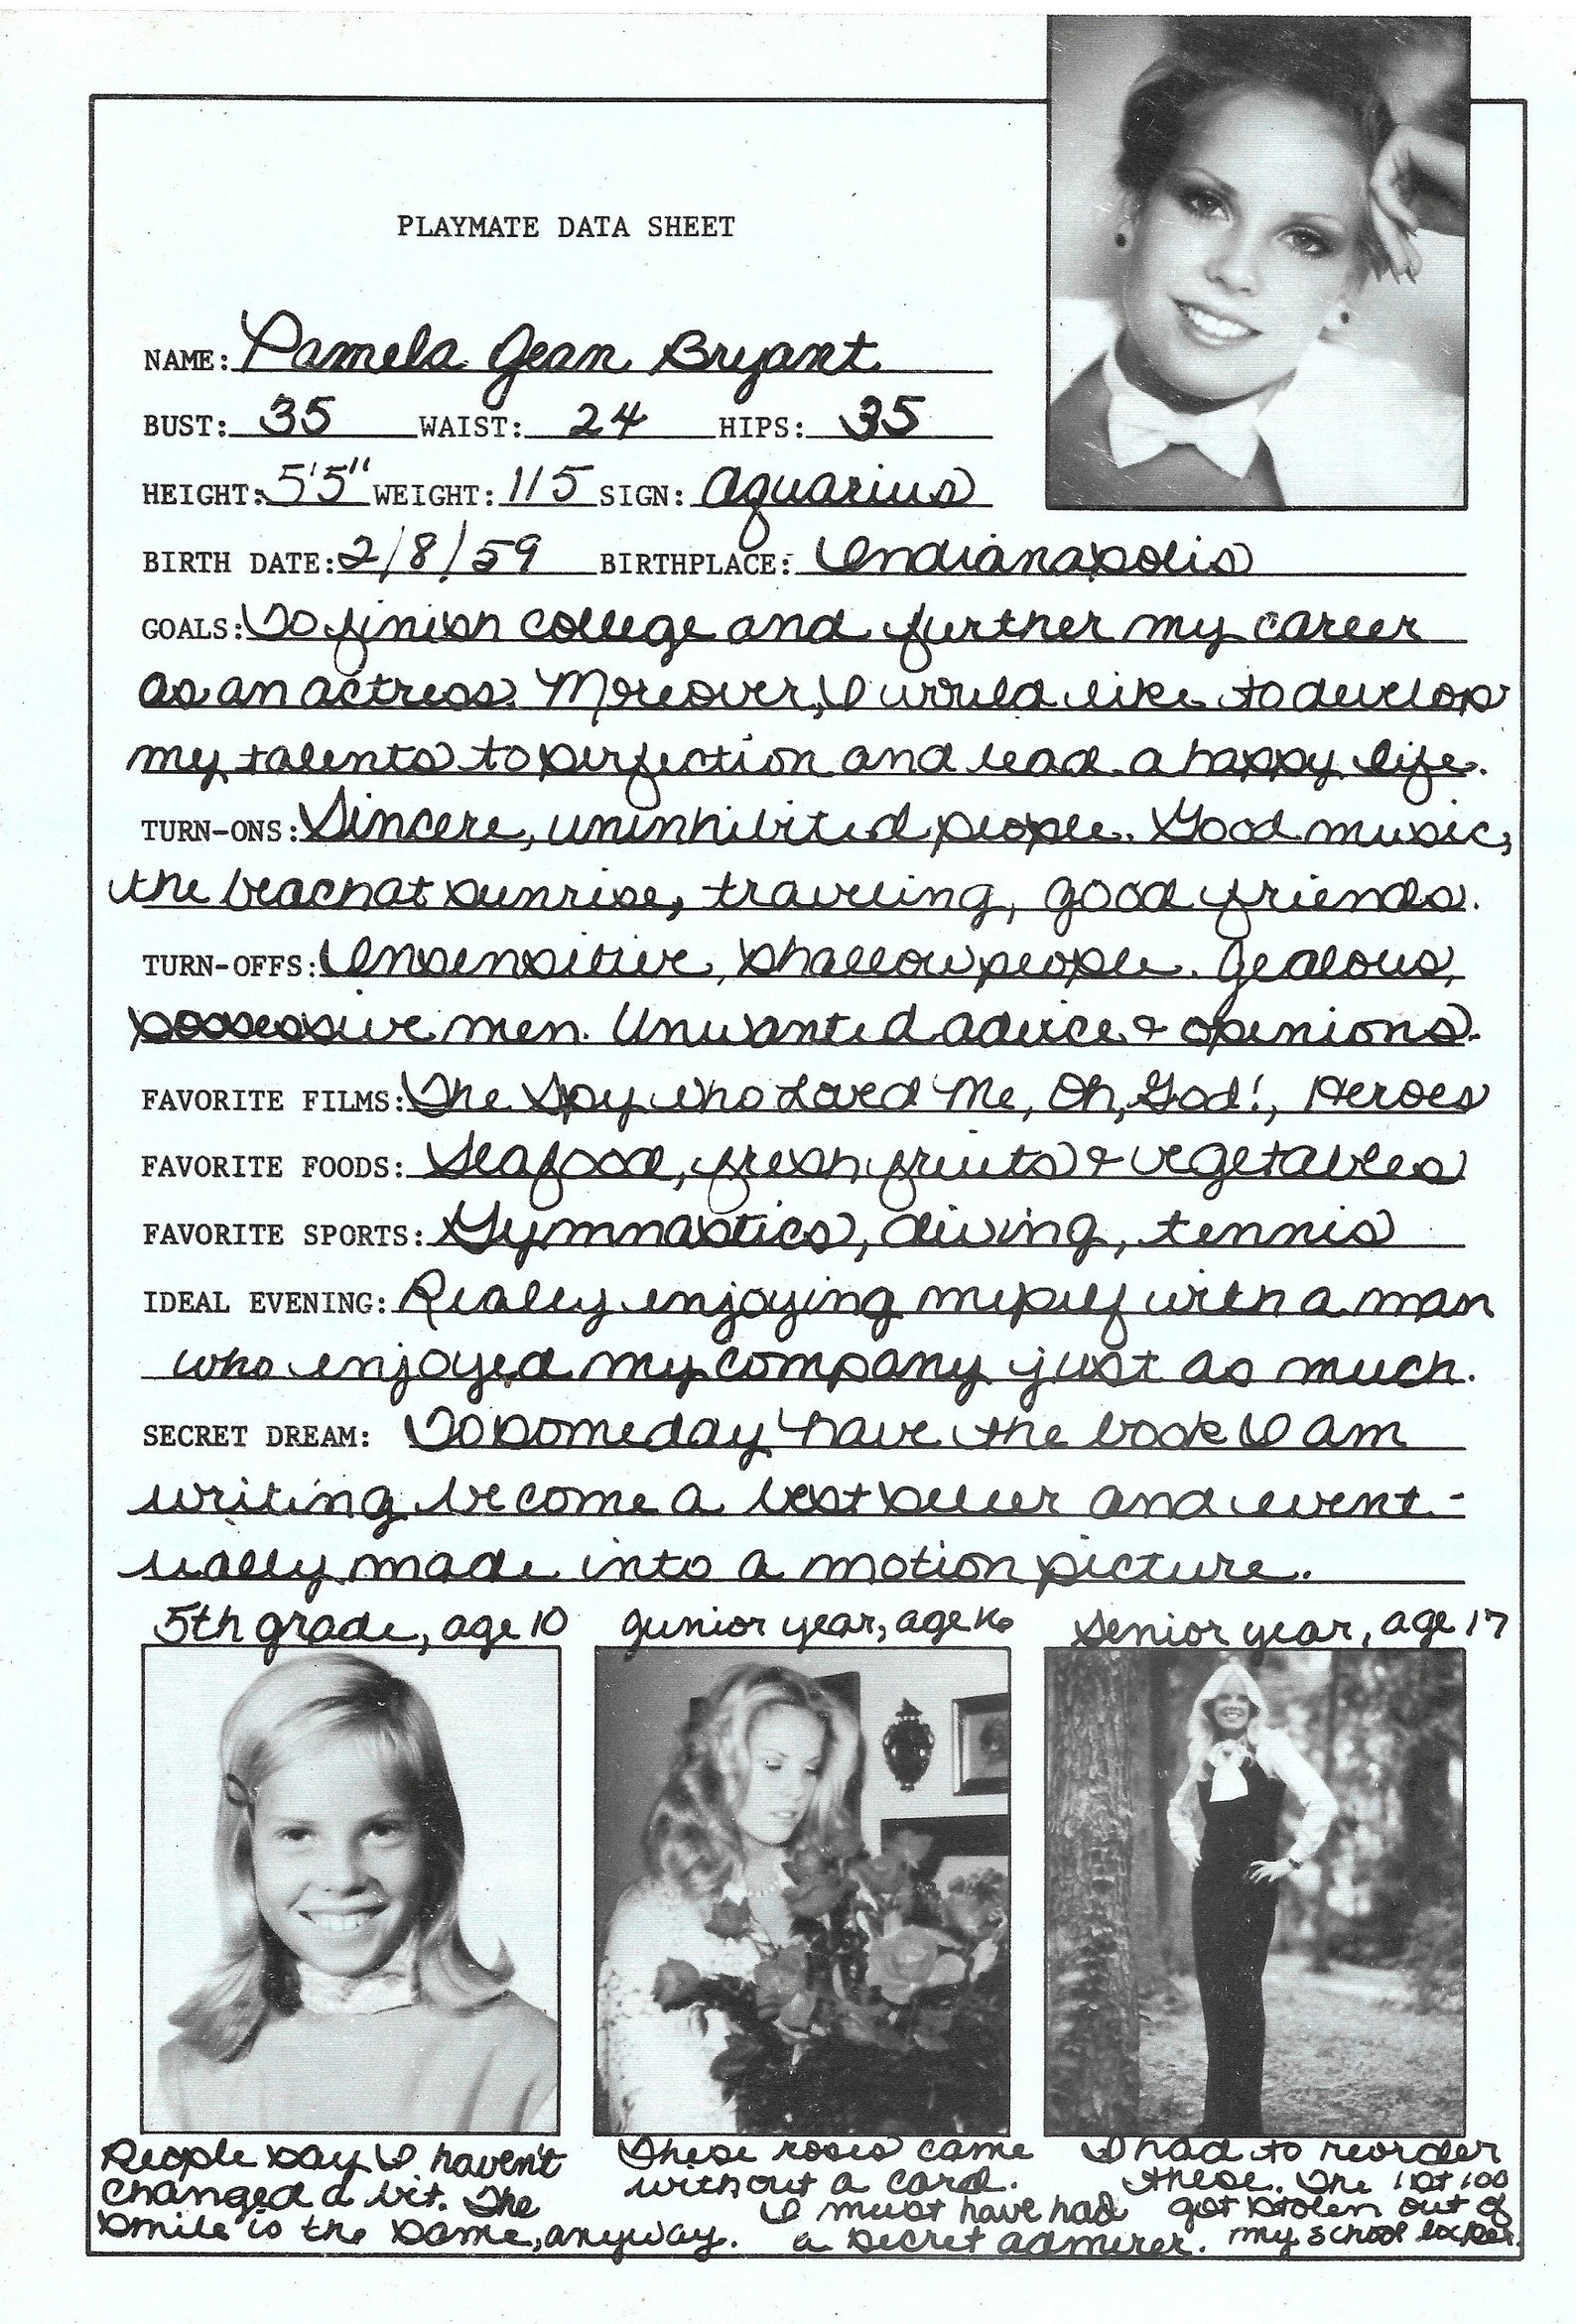 PLAYMATE DATA SHEET
NAME: Pamela Jean Bryant
BUST: 35 WAIST: 24 HIPS: 35
HEIGHT: 5'5" WEIGHT: 115 SIGN: Aquarius
BIRTH DATE: 2/8/59 BIRTHPLACE: Indianapolis
GOALS: To finish college and further my career
as an actress. Moreover, I would like to develop
my talents to perfection and lead a happy life.
TURN-ONS: Sincere, uninhibited people. Good music,
the beach at sunrise, traveling, good friends.
TURN-OFFS: Insensitive, shallow people. Jealous,
possessive men. Unwanted advice & opinions.
FAVORITE FILMS: The Spy Who Loved Me, Oh, God!, Heroes
FAVORITE FOODS: Seafood, fresh fruits & vegetables
FAVORITE SPORTS: Gymnastics, diving, tennis
IDEAL EVENING: Really enjoying myself with a man
who enjoyed my company just as much.
SECRET DREAM: To someday have the book I am
writing become a best seller and event-
ually made into a motion picture.
5th grade, age 10 Junior year, age 16 Senior year, age 17
People say I haven't
changed a bit. The
smile is the same, anyway.
These roses came
without a card.
I must have had
a secret admirer.
I had to reorder
these. The 1st 100
got stolen out of
my school locker.